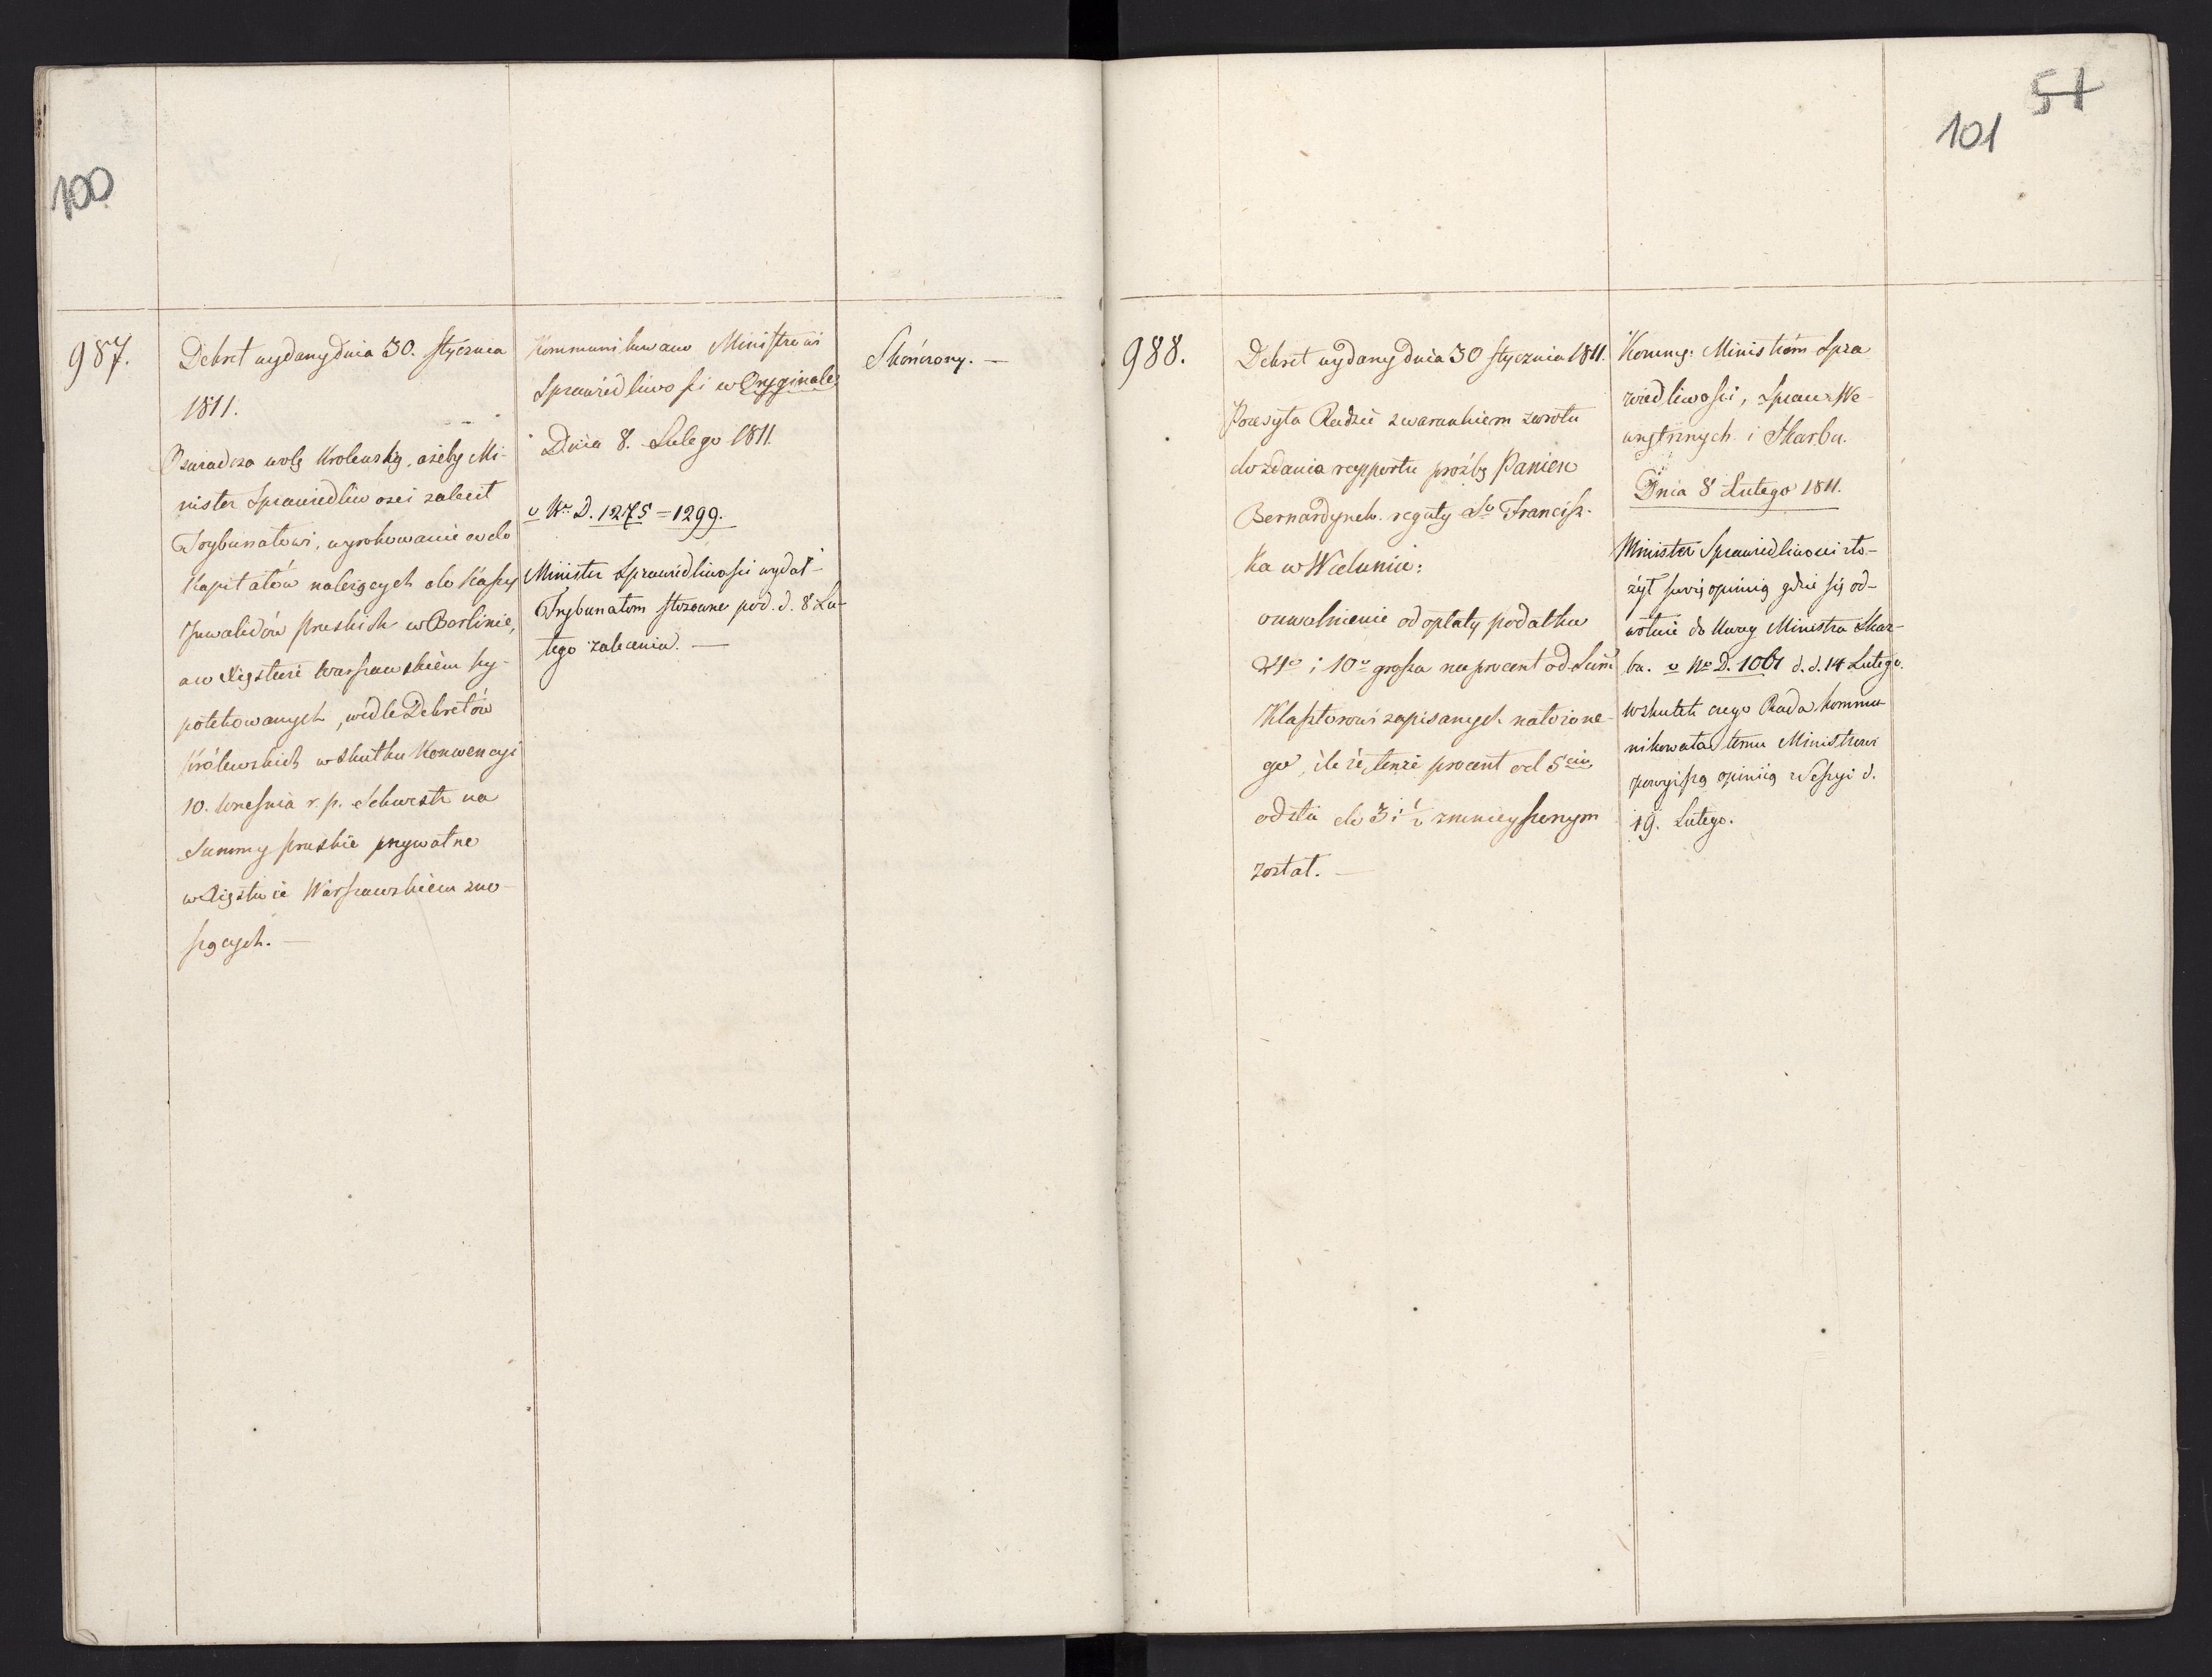 100
987.
Dekret wydany dnia 30. stycznia
1811.
Oswiadcza wolę Krolewską, ażeby Mi-
nister Sprawiedliwosci zalecił
Trybunałowi, wyrokowanie co do
Kapitałów należących do Kassy
Inwalidów pruskich w Berlinie,
a w Xięstwie Warszawskiem hy-
potekowanych, wedle Dekretów
Królewskich w skutku Konwencyi
10. Września r. p. Sekwestr na
Summy pruskie prywatne
w Xięstwie Warszawskiem zno-
szących. —
Kommunikowano Ministrowi
Sprawiedliwości w Oryginale
Dnia 8. Lutego 1811.
v Nro D. 1275 = 1299.
Minister Sprawiedliwości wydał
Trybunałom stosowne pod. d. 8 Lu-
tego zalecenia. —
Skończony. —
51
101
988.
Dekret wydany dnia 30 stycznia 1811.
Przesyła Radzie z warunkiem zwrotu
do zdania rapportu proźbę Panien
Bernardynek reguły So Francisz-
ka w Wieluniu:
o uwolnienie od opłaty podatku
24o i 10o grosza na procent od Summ
Klasztorowi zapisanych nałożone-
go, ile że tenże procent od 5ciu
od sta do 3 i ½ zmnieyszonym
został. —
Kommq: Ministróm Spra
wiedliwości, Spraw We-
wnętrznych i Skarbu.
Dnia 8 Lutego 1811.
Minister Sprawiedliwosci zło-
żył swoię opinią gdzie się od-
wołuie do Uwag Ministra Skar-
bu. v Nro D. 1061 d. d. 14 Lutego.
w skutek czego Rada kommu-
nikowała temu Ministrowi
powyższą opinią z Sessyi d.
19. Lutego.